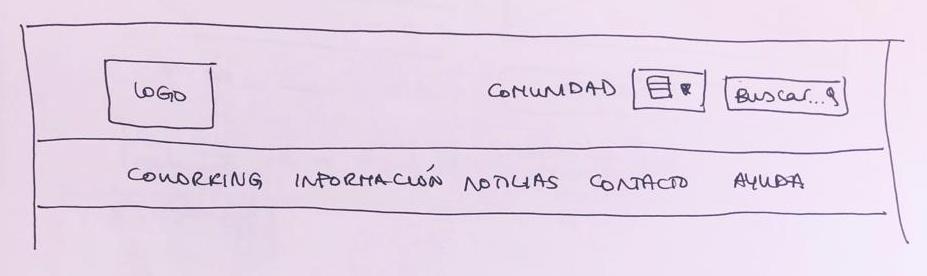 LOGO COMUNIDAD Buscar...
COWORKING INFORMACIÓN NOTICIAS CONTACTO AYUDA